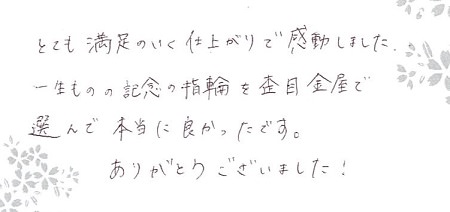 とても満足のいく仕上がりで感動しました.
一生ものの記念の指輪を杢目金屋で
選んで本当に良かったです。
ありがとうございました!